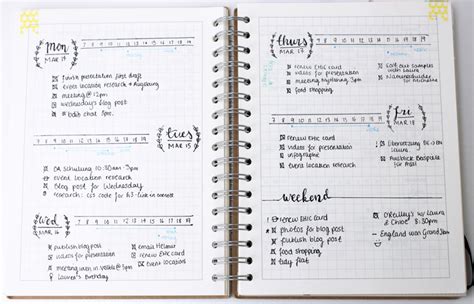 mon
MAR 14
7 8 9 10 11 12 13 14 15 16 17 18 19
finish presentation first draft
event location research
meeting @12pm
wednesday's blog post
edit chat 7pm
tues
MAR 15
7 8 9 10 11 12 13 14 15 16 17 18 19
CA Schulung 10:30am-3pm
event location research
blog post for Wednesday
research: css code for
wed
MAR 16
7 8 9 10 11 12 13 14 15 16 17 18 19
publish blog post
videos for presentation
meeting
Lauren's Birthday
email Helmut
renew EHIC card
event locations
thurs
MAR 17
7 8 9 10 11 12 13 14 15 16 17 18 19
renew EHIC card
videos for presentation
meeting 3pm
food shopping
sort out
with Laura
fri
MAR 18
7 8 9 10 11 12 13 14 15 16 17 18 19
renew EHIC card
videos for presentation
infographic
event location research
für
weekend
renew EHIC card
photos for blog post
publish blog post
food shopping
tidy flat
O'Reilly's w/ Laura
& Chloe 8:30pm
England won Grand Slam